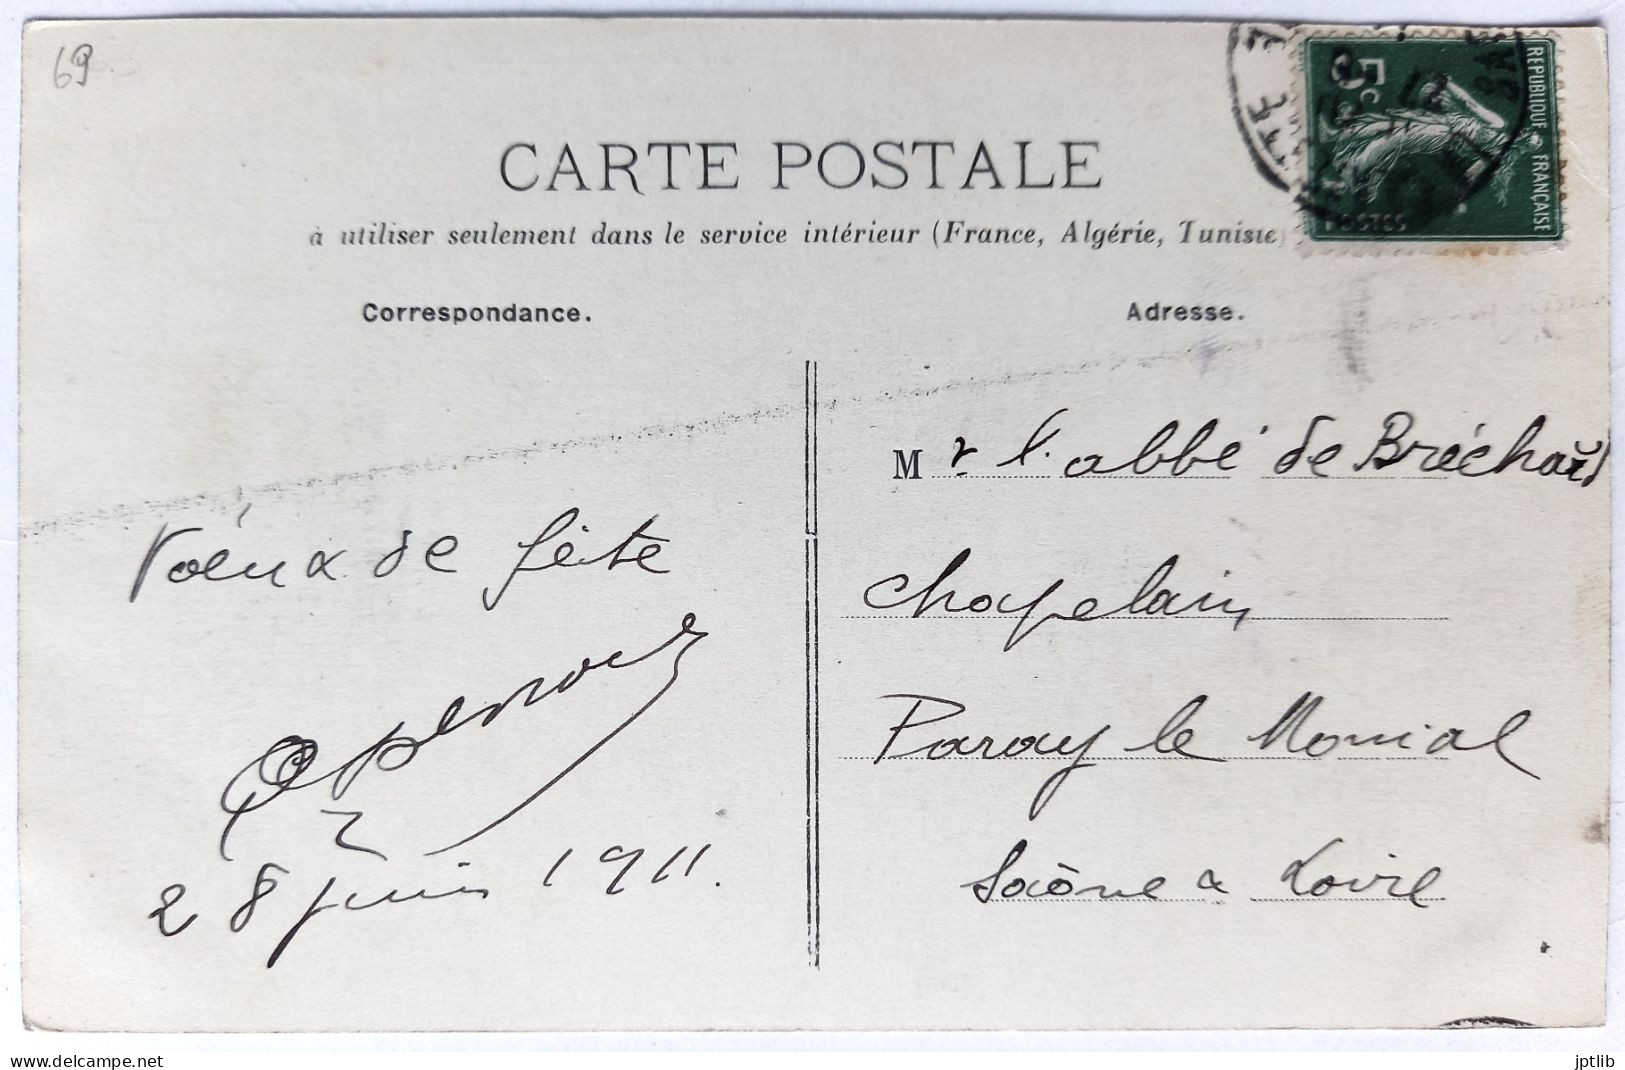 69
CARTE POSTALE
à utiliser seulement dans le service intérieur (France, Algérie, Tunisie)
REPUBLIQUE FRANÇAISE
5c
POSTES
Correspondance.
Adresse.
Voeux de fête
28 juin 1911.
Mr l'abbé de Bréchard
Chapelain
Paray le Monial
Saône & Loire
delcampe.net
jptlib